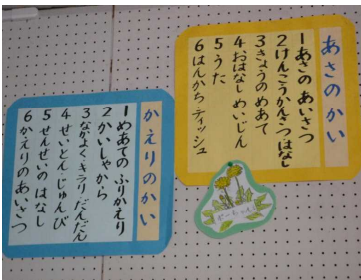 あさのかい
1 あさの あいさつ
2 けんこうかんさつはなし
3 きょうのめあて
4 おはなしめいじん
5 うた
6 はんかち ティッシュ
かえりのかい
1 めあての ふりかえり
2 かいしゃから
3 なかよくキラリ だんだん
4 せいとん じゅんび
5 せんせいの はなし
6 かえりのあいさつ